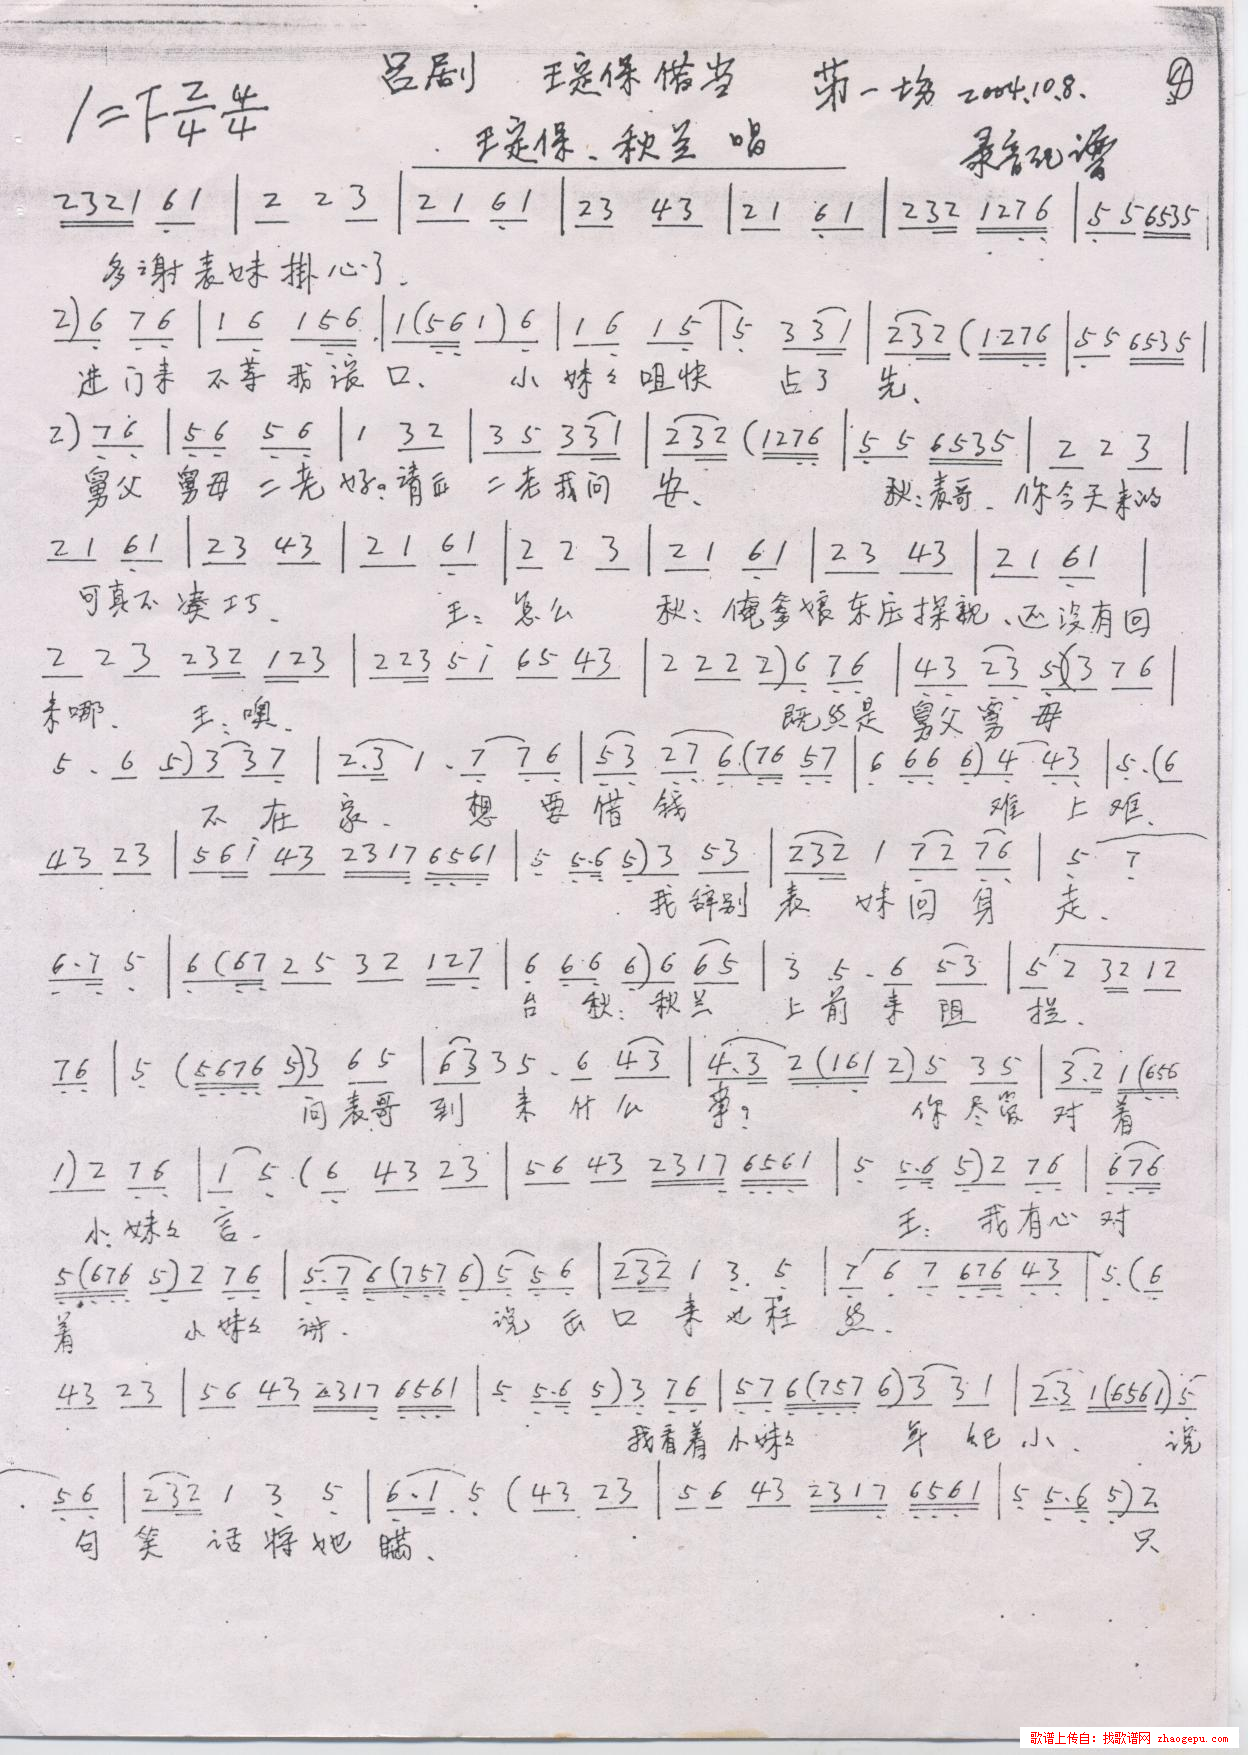 吕剧 王定保借当 第一场 2004.10.8. ④
1=F 2/4 4/4
王定保、秋兰 唱 录音记谱
2321 61 | 2 2 3 | 21 61 | 23 43 | 21 61 | 232 1276 | 5 5 6535
多谢表妹掛心了.
2) 6 76 | 16 156 | 1(561) 6 | 16 15 | 5 331 | 232 (1.276 | 55 6535 |
进门来不等我说口、 小妹々咀快 占了 先、
2) 76 | 56 56 | 1 32 | 35 331 | 232 (1276 | 5 5 6535 | 2 2 3 |
舅父 舅母 二老好?请正 二老我问 安、 秋:表哥、你今天来的
21 61 | 23 43 | 21 61 | 2 2 3 | 21 61 | 23 43 | 21 61 |
可真不凑巧、 王:怎么 秋:俺爹娘东庄探亲、还没有回
2 2 3 232 123 | 223 5i 65 43 | 2 2 2 2) 6 76 | 43 23 5(3 76 |
来哪、 王:噢、 既然是 舅父舅母
5. 6 5) 3 37 | 2.3 1. 7 76 | 53 27 6(76 57 | 6 66 6) 4 43 | 5.(6
不在家、 想要借钱 难上难、
43 23 | 56i 43 2317 6561 | 5 5.6 5) 3 53 | 232 1 72 76 | 5 7
我辞别表 妹回身 走、
6.7 5 | 6 (67 25 32 127 | 6 66 6) 6 65 | 3 5. 6 53 | 5 2 32 12
台 秋:秋兰 上前来阻 拦、
76 | 5 (5676 5)3 65 | 63 35. 6 43 | 4.3 2(161 2) 5 35 | 3.2 1(656
问表哥到 来什么 事? 你尽管 对着
1) 2 76 | 1 5. (6 43 23 | 56 43 2317 6561 | 5 5.6 5) 2 76 | 676
小妹々言. 王: 我有心对
5(676 5) 2 76 | 5.7 6(757 6) 5 56 | 232 1 3. 5 | 7 6 7 676 43 | 5.(6
着 小妹々 讲. 说出口来也枉 然.
43 23 | 56 43 2317 6561 | 5 5.6 5) 3 76 | 57 6(757 6) 3 31 | 2.3 1(6561) 5
我看着小妹々 年纪小、 说
56 | 232 1 3 5 | 6.1 5 (43 23 | 56 43 2317 6561 | 5 5.6 5) 2
句笑 话将她瞒、 只
歌谱上传自：找歌谱网 zhaogepu.com